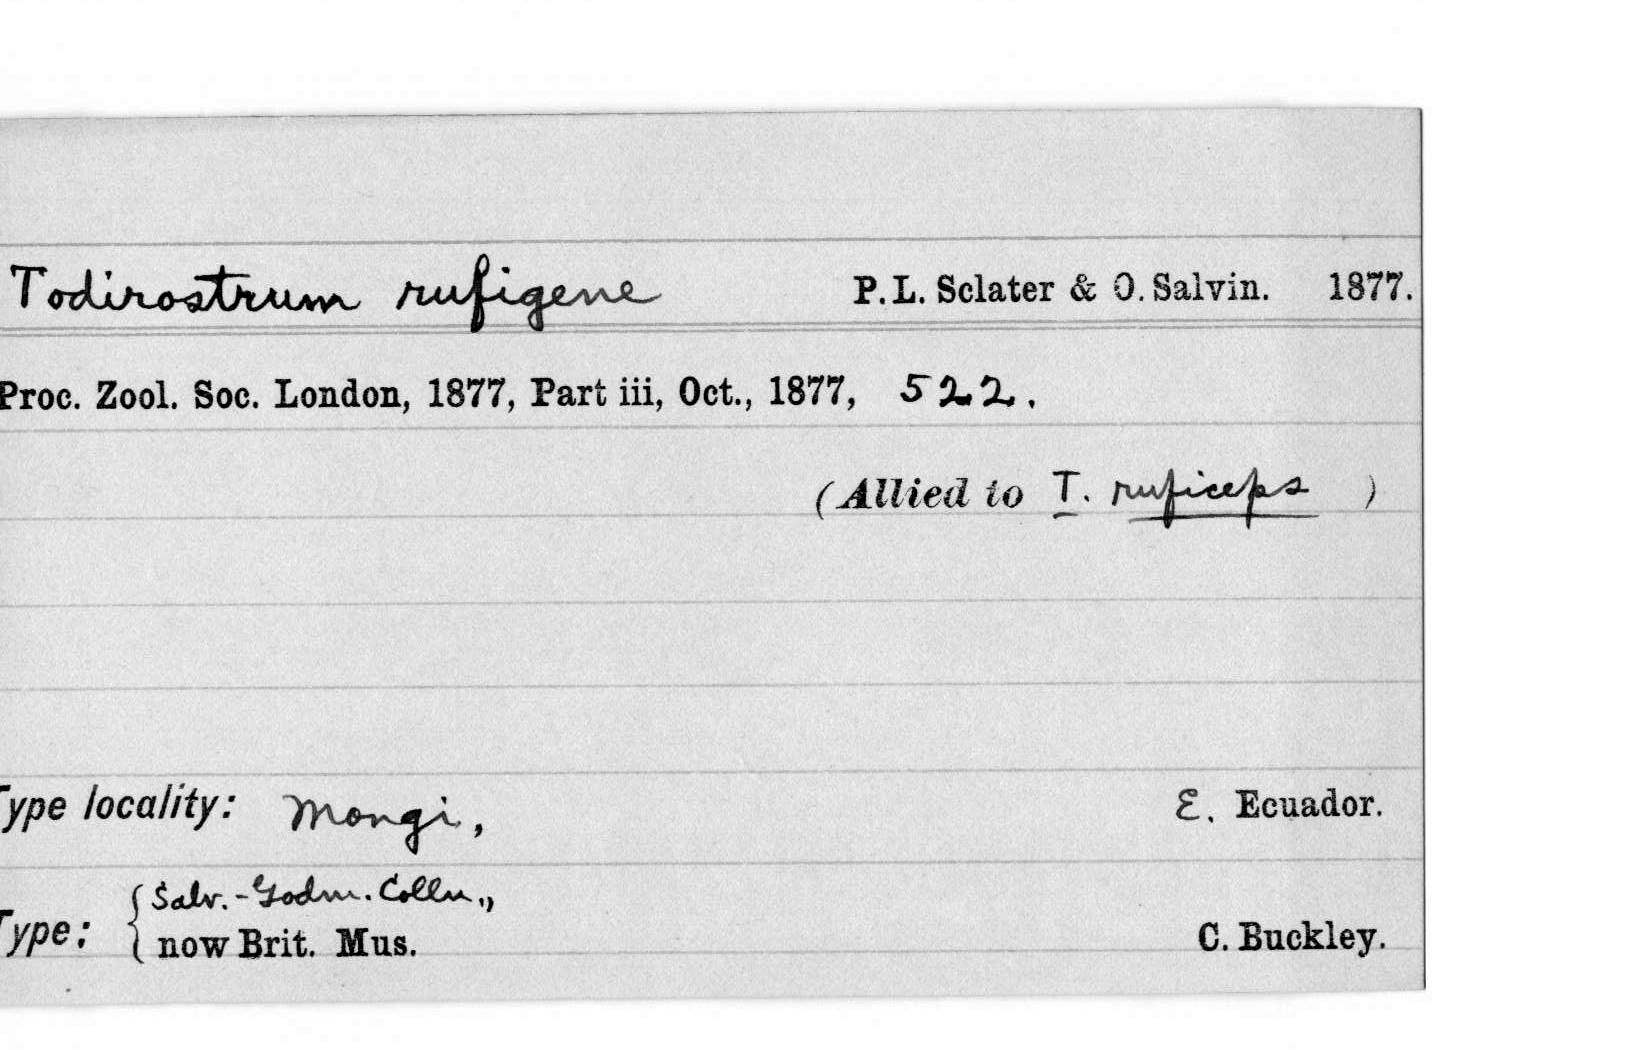 Todirostrum rufigene P. L. Sclater & O. Salvin. 1877.
Proc. Zool. Soc. London, 1877, Part iii, Oct., 1877, 522.
(Allied to T. ruficeps )
Type locality: Mongi, E. Ecuador.
Salv.-Godm. Colln.,
Type: now Brit. Mus. C. Buckley.